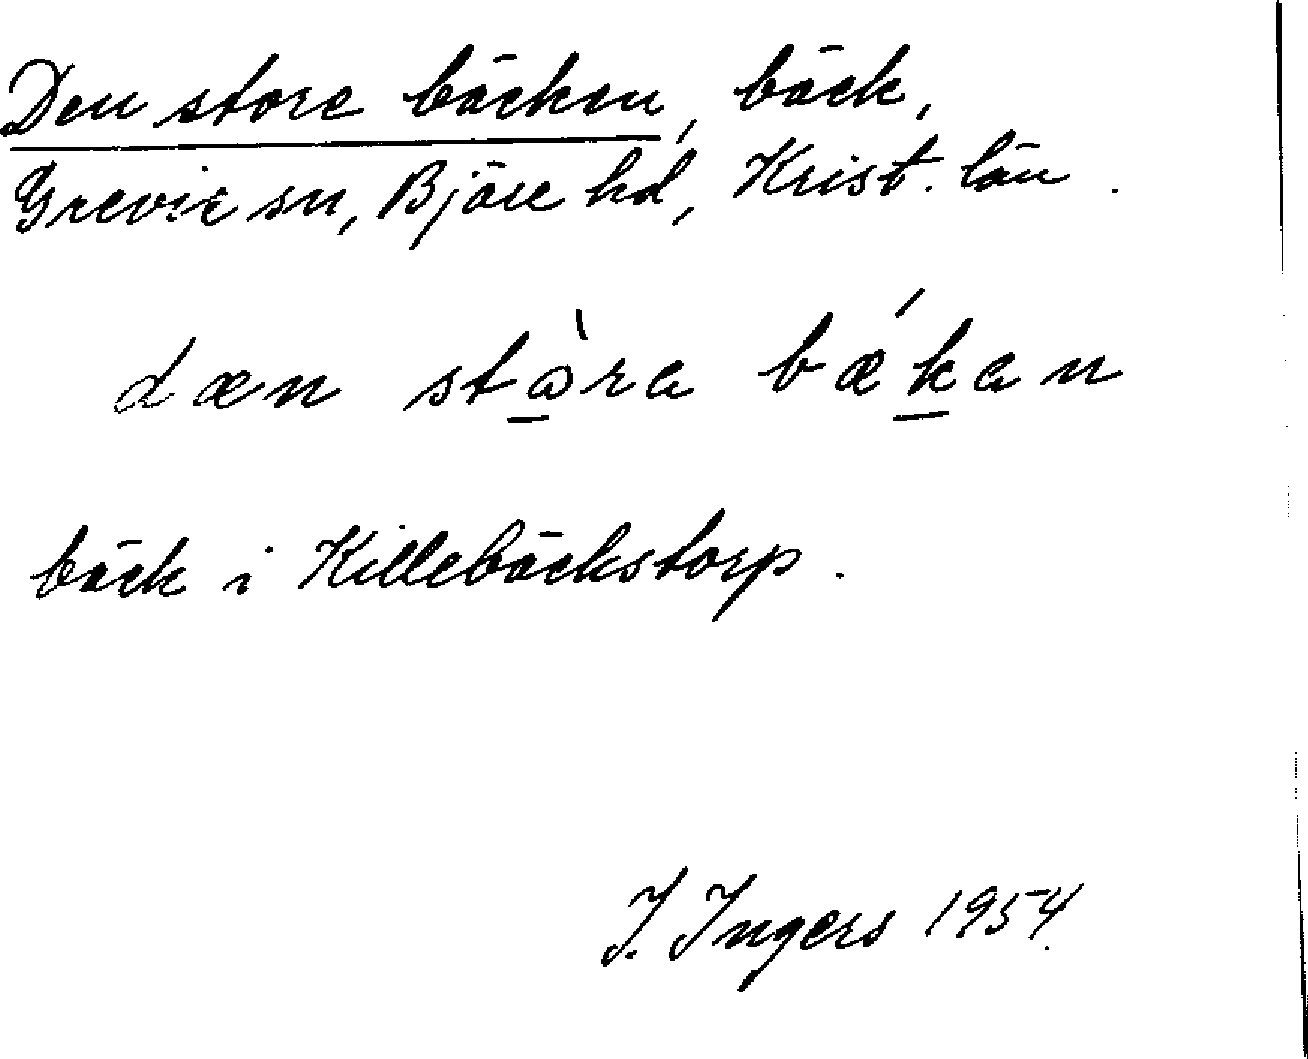 Den store bäcken, bäck,
Grevie sn, Bjäre hd, Krist. län.
dæn stɷ̱̀ra bæ´ḵan
bäck i Killebäckstorp.
I. Ingers 1954.